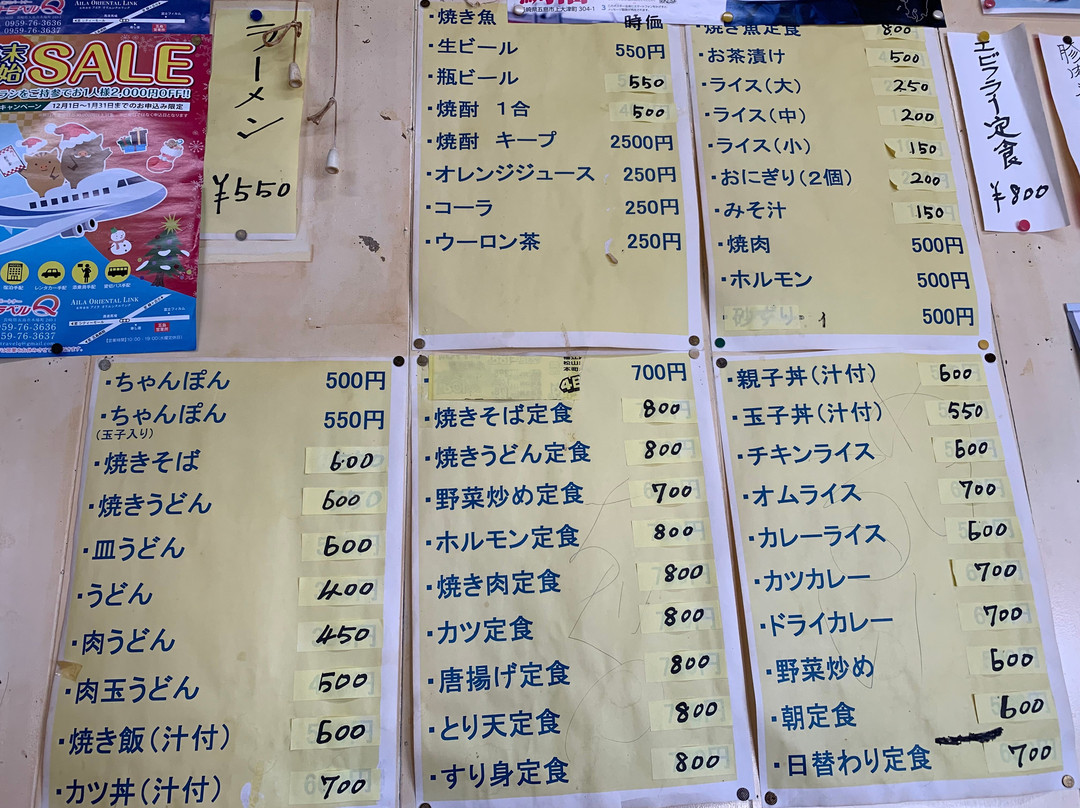 AILA ORIENTAL LINK
0959-76-3636
0959-76-3637
SALE
ランをご持参でお1人様2,000円OFF!!
キャンペーン
12月1日〜1月31日までのお申込み限定
宿泊手配
レンタカー手配
貸切バス手配
AILA ORIENTAL LINK
0959-76-3636
ラーメン
¥550
・焼き魚 時価
・生ビール 550円
・瓶ビール 550
・焼酎 1合 500
・焼酎 キープ 2500円
・オレンジジュース 250円
・コーラ 250円
・ウーロン茶 250円
崎県五島市上大津町 304-1
焼き魚定食 800
・お茶漬け 500
・ライス(大) 250
・ライス(中) 200
・ライス(小) 150
・おにぎり(2個) 200
・みそ汁 150
・焼肉 500円
・ホルモン 500円
500円
エビフライ定食
¥800
・ちゃんぽん 500円
・ちゃんぽん 550円
(玉子入り)
・焼きそば 600
・焼きうどん 600
・皿うどん 600
・うどん 400
・肉うどん 450
・肉玉うどん 500
・焼き飯(汁付) 600
・カツ丼(汁付) 700
700円
・焼きそば定食 800
・焼きうどん定食 800
・野菜炒め定食 700
・ホルモン定食 800
・焼き肉定食 800
・カツ定食 800
・唐揚げ定食 800
・とり天定食 800
・すり身定食 800
・親子丼(汁付) 600
・玉子丼(汁付) 550
・チキンライス 600
・オムライス 700
・カレーライス 600
・カツカレー 700
・ドライカレー 700
・野菜炒め 600
・朝定食 600
・日替わり定食 700